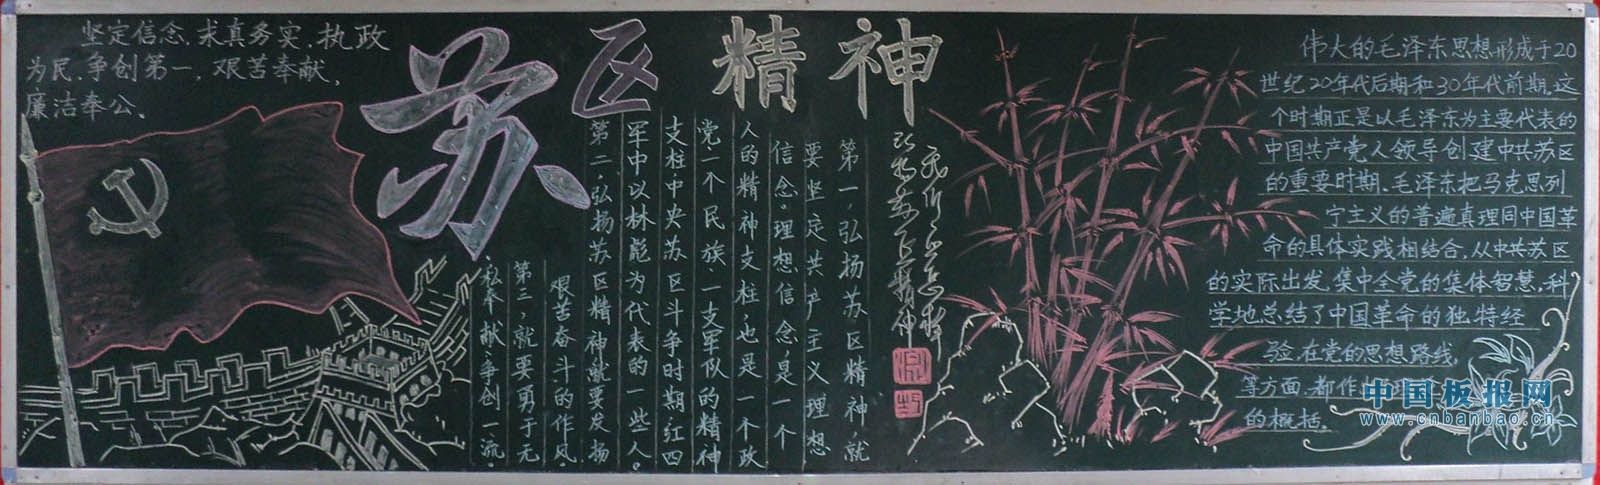 坚定信念、求真务实、执政
为民、争创第一、艰苦奉献、
廉洁奉公。
苏区精神
第一，弘扬苏区精神就
要坚定共产主义理想
信念。理想信念，是一个
人的精神支柱，也是一个政
党一个民族、一支军队的精神
支柱。中央苏区斗争时期，红四
军中以林彪为代表的一些人。
第二，弘扬苏区精神就要发扬
艰苦奋斗的作风。
第三，就要勇于无
私奉献、争创一流。
伟大的毛泽东思想形成于20
世纪20年代后期和30年代前期。这
个时期正是以毛泽东为主要代表的
中国共产党人领导创建中共苏区
的重要时期。毛泽东把马克思列
宁主义的普遍真理同中国革
命的具体实践相结合，从中共苏区
的实际出发，集中全党的集体智慧，科
学地总结了中国革命的独特经
验，在党的思想路线，
等方面，都作
的概括。
中国板报网
www.cnbanbao.cn